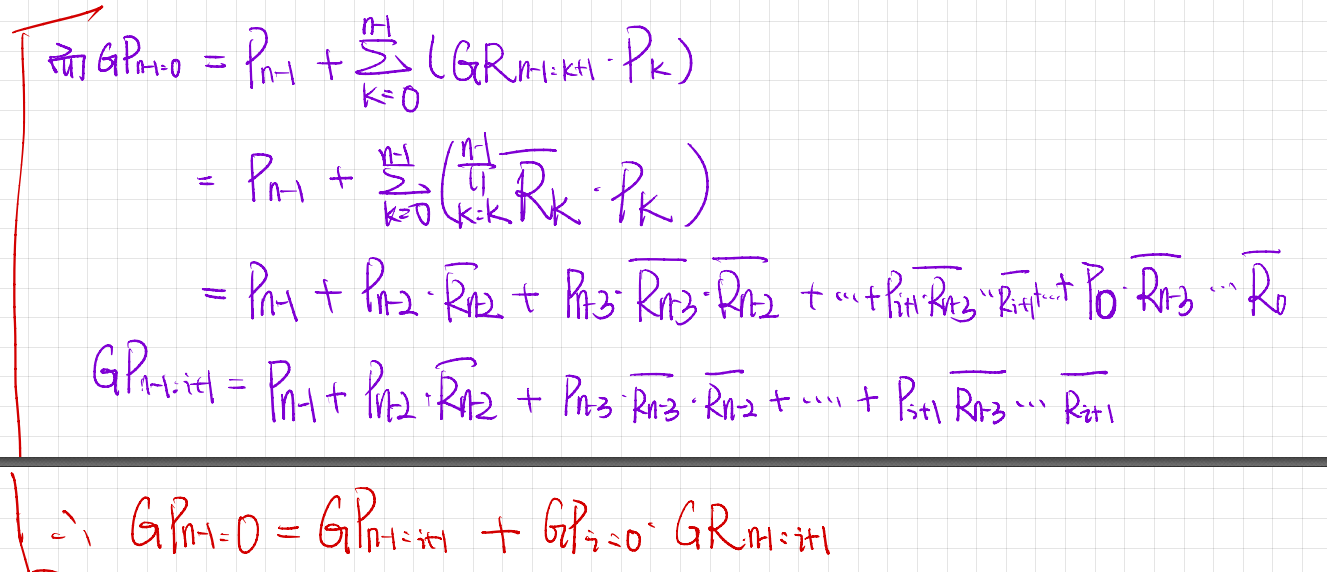 而 GP_{n-1:0} = P_{n-1} + \sum_{k=0}^{n-1} (GR_{n-1:k+1} · P_k)
= P_{n-1} + \sum_{k=0}^{n-1} (\prod_{k=k}^{n-1} \overline{R_k} · P_k)
= P_{n-1} + P_{n-2} · \overline{R_{n-2}} + P_{n-3} · \overline{R_{n-3}} · \overline{R_{n-2}} + ... + P_{i+1} · \overline{R_{n-3}} ... \overline{R_{i+1}} + ... + P_0 · \overline{R_{n-3}} ... \overline{R_0}
GP_{n-1:i+1} = P_{n-1} + P_{n-2} · \overline{R_{n-2}} + P_{n-3} · \overline{R_{n-3}} · \overline{R_{n-2}} + .... + P_{i+1} \overline{R_{n-3}} ... \overline{R_{i+1}}
∴ GP_{n-1:0} = GP_{n-1:i+1} + GP_{i:0} · GR_{n-1:i+1}